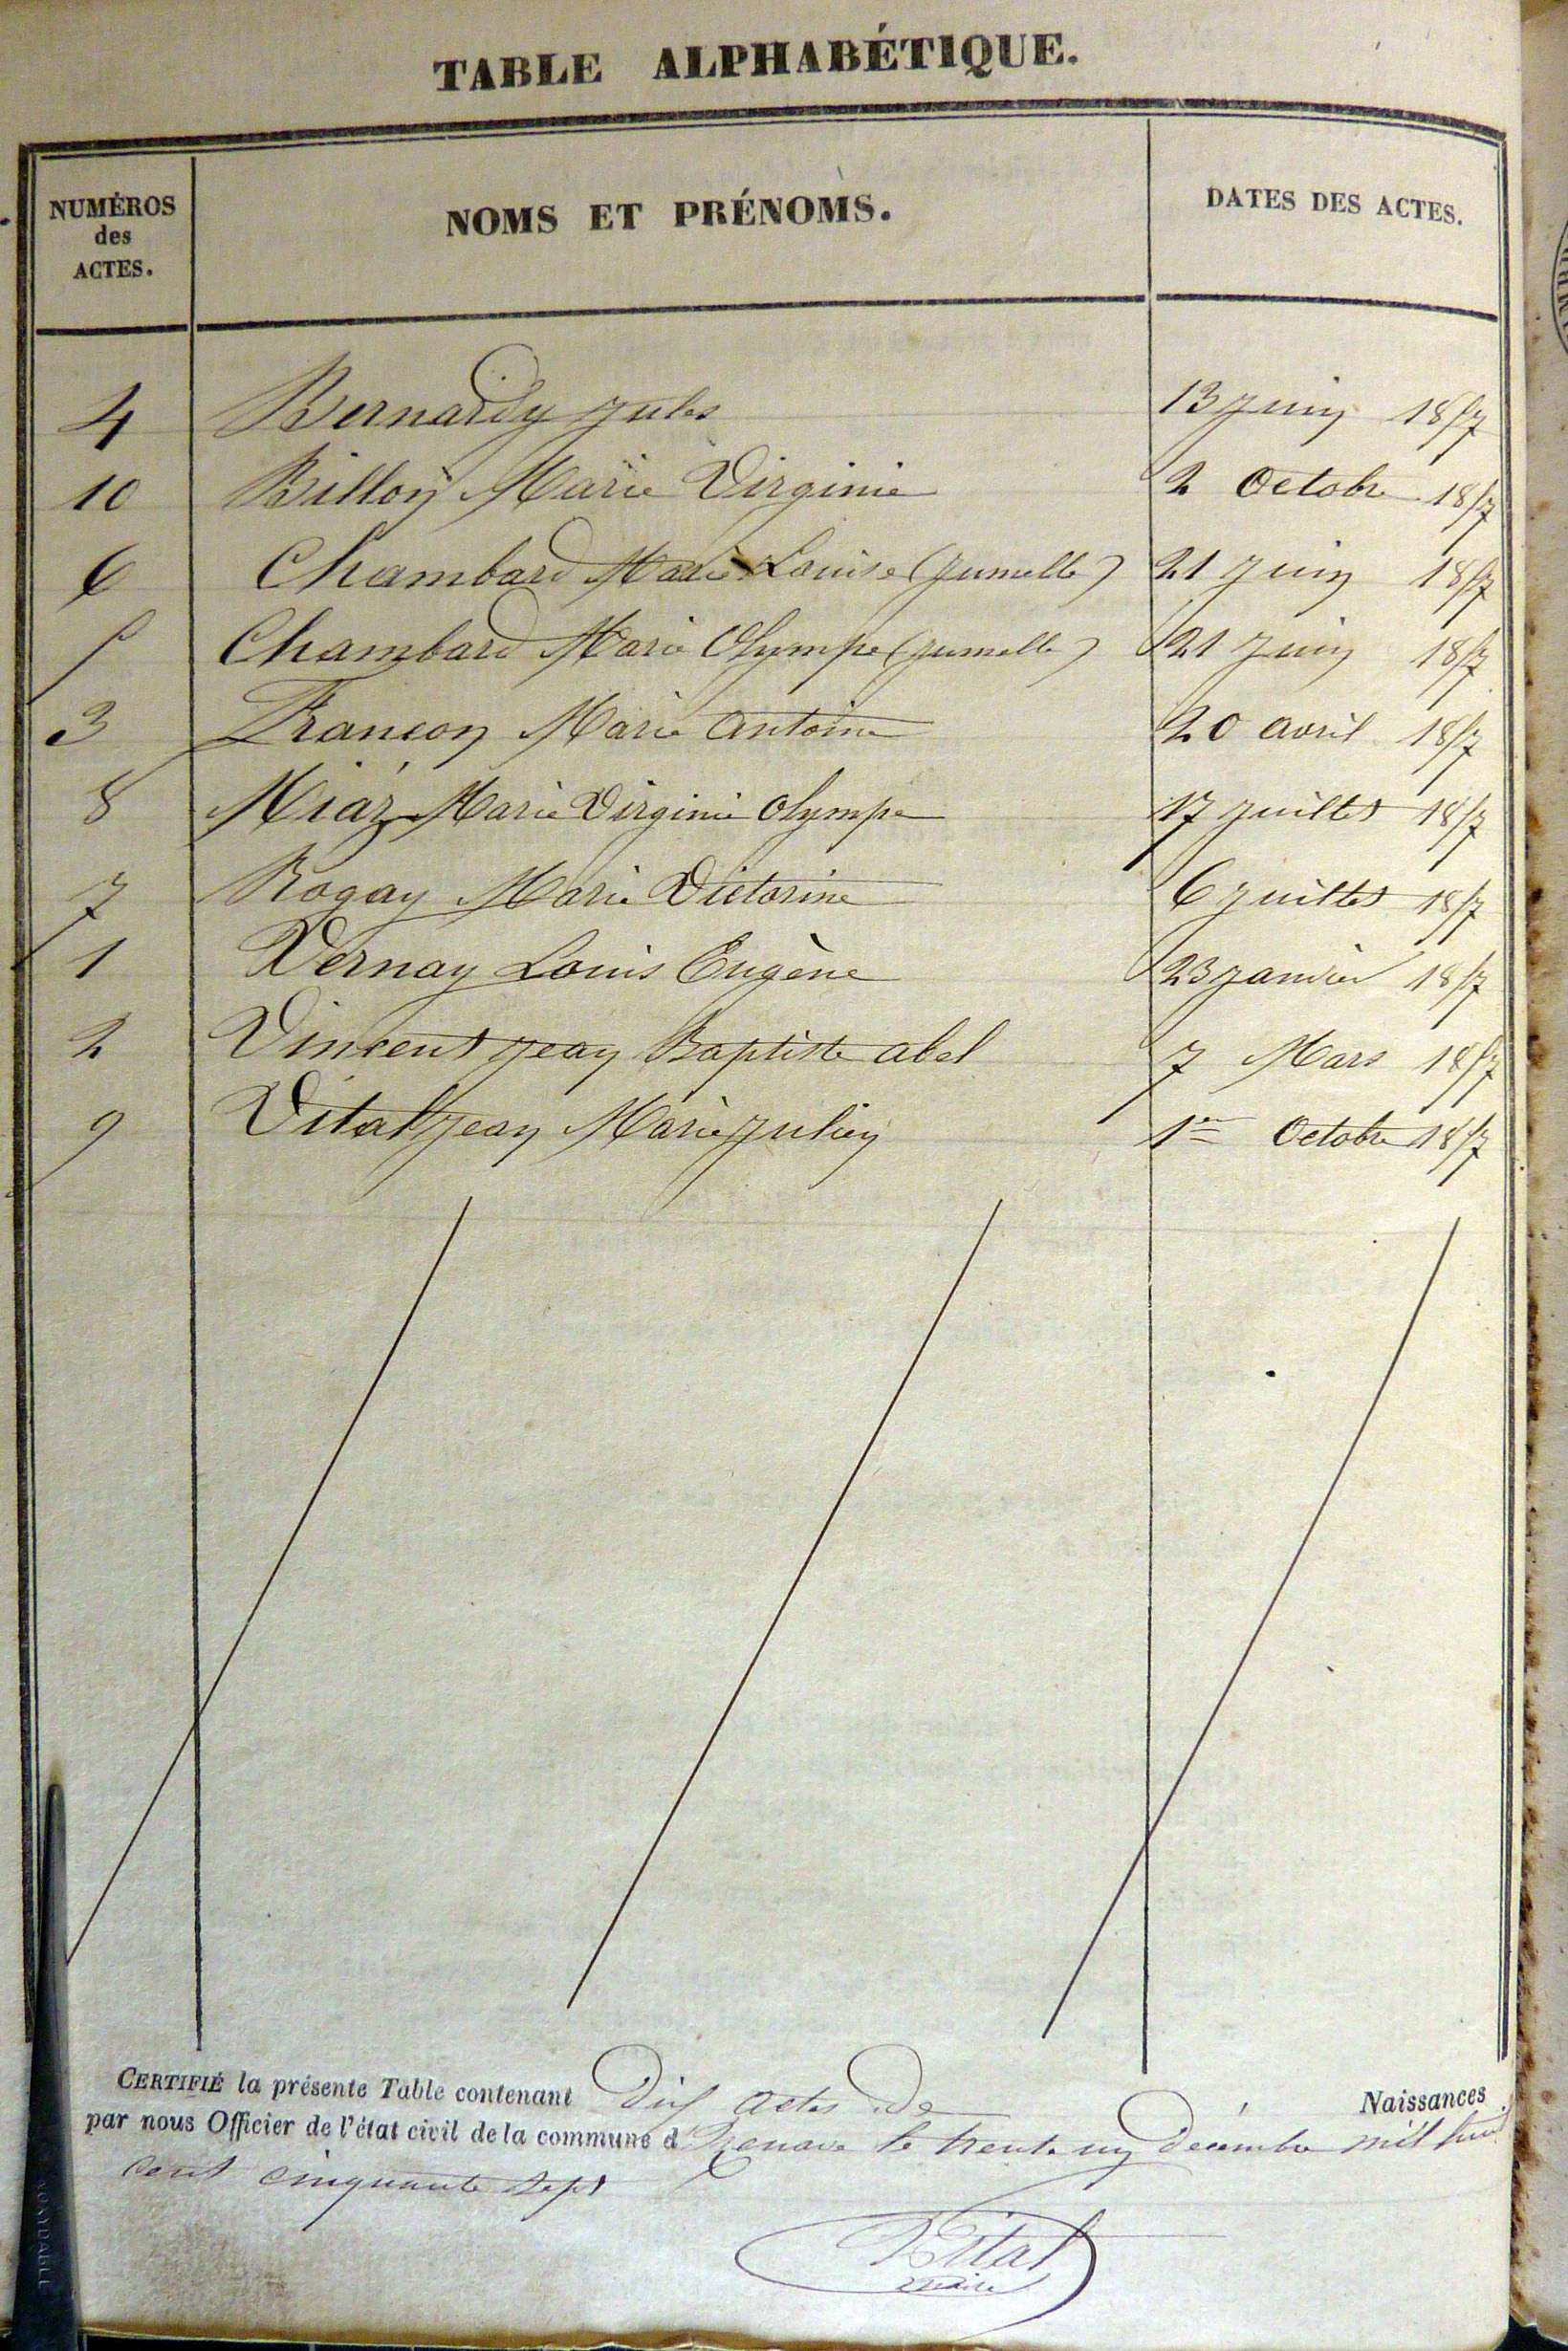 TABLE ALPHABÉTIQUE.
NUMÉROS des ACTES. NOMS ET PRÉNOMS. DATES DES ACTES.
4 Bernardy Jules 13 juin 1857
10 Billon Marie Virginie 2 Octobre 1857
6 Chambard Marie Louise (jumelle) 21 juin 1857
5 Chambard Marie Olympe (jumelle) 21 juin 1857
3 Françon Marie Antoine 20 avril 1857
8 Miaz Marie Virginie Olympe 17 juillet 1857
7 Rogay Marie Victorine 6 juillet 1857
1 Vernay Louis Eugène 23 janvier 1857
2 Vincent Jean Baptiste abel 7 Mars 1857
9 Vital Jean Marie Julien 1er Octobre 1857
CERTIFIÉ la présente Table contenant Dix actes de Naissances
par nous Officier de l'état civil de la commune d le trente un décembre mil huit
cent cinquante sept
Vital
maire